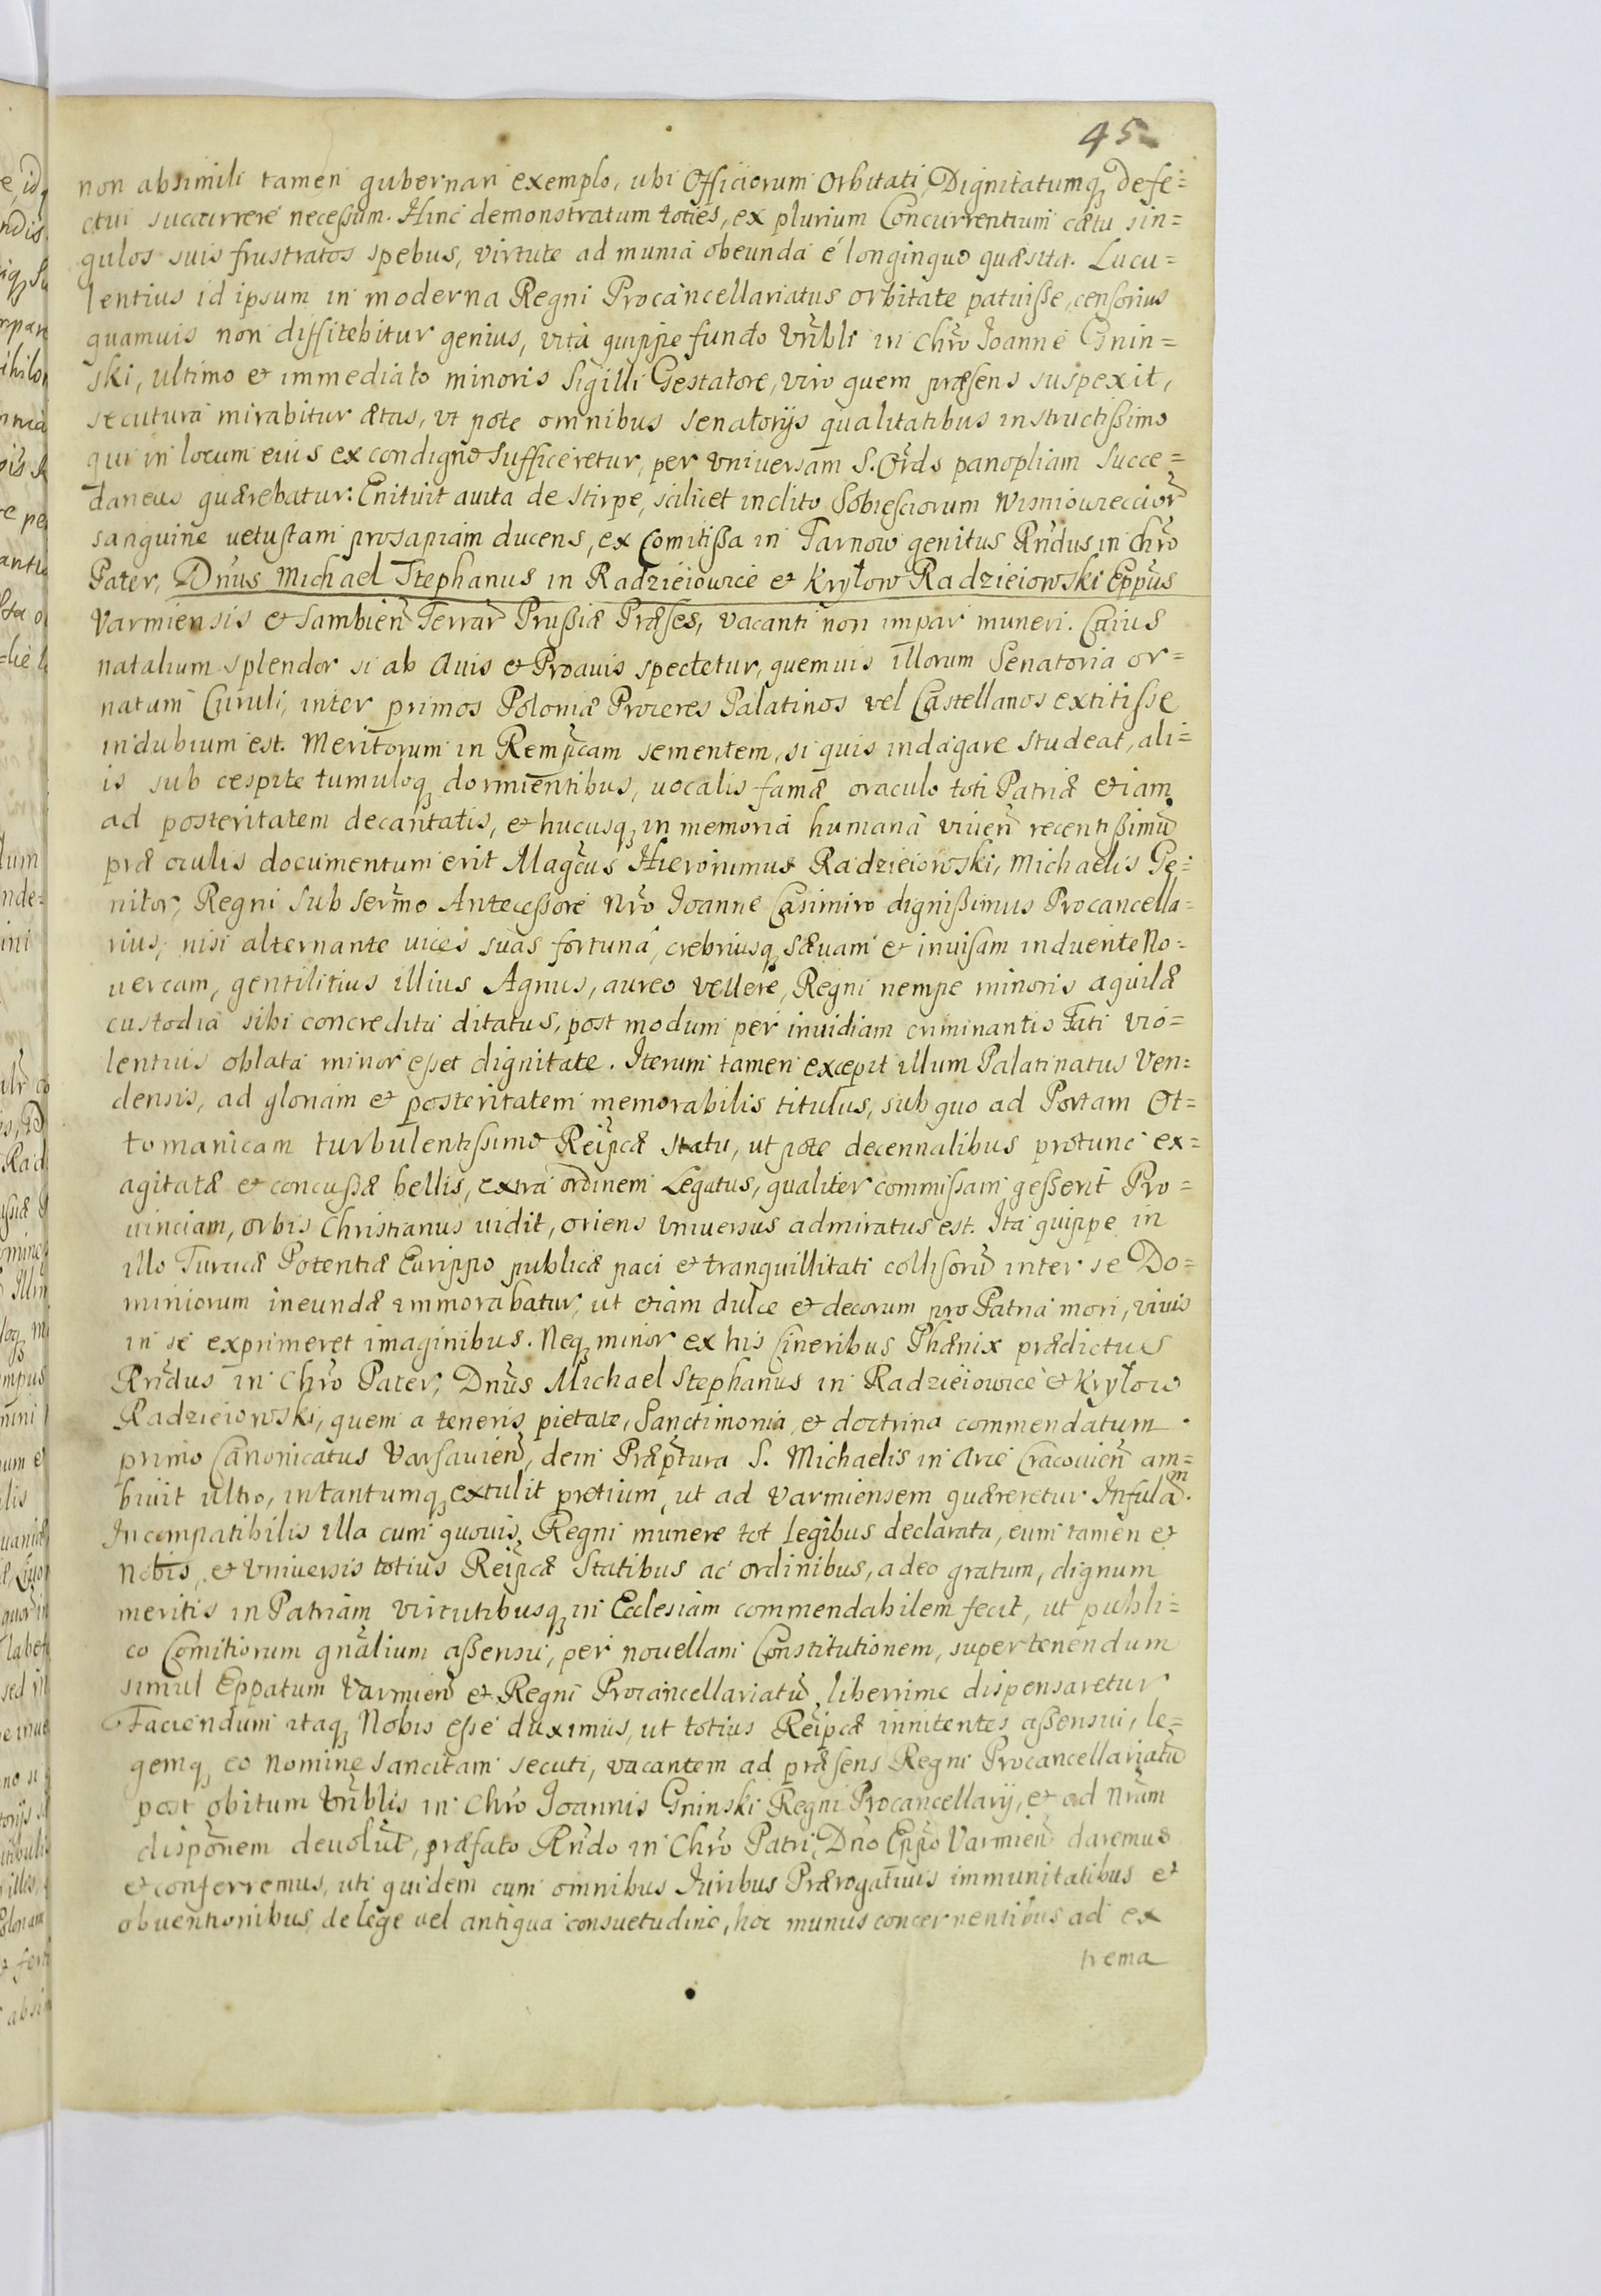 45
non absimili tamen gubernari exemplo, ubi Officiorum orbitati, Dignitatumq; defe=
ctui succurrere necessum. Hinc demonstratum toties, ex plurium Concurrentium cætu sin=
gulos suis frustratos spebus, virtute ad munia obeunda é longinquo quæsita. Lucu=
lentius id ipsum in moderna Regni Procancellariatus orbitate patuisse, censorius
quamuis non diffitebitur genius, vitâ quippe functo Vn̄bli in Chrō Joanne Gnin=
ski, ultimo et immediato minoris Sigilli Gestatore, viro quem præsens suspexit,
secutura mirabitur ætas, vt pote omnibus senatorijs qualitatibus instructißimo
qui in locum eius ex condigno sufficeretur, per vniversam S. Ords panopliam Succe=
daneus quærebatur: Enituit auita de stirpe, scilicet inclito Sobiesciorum Wisniowiecciōr
sanguine uetustam prosapiam ducens, ex Comitißa in Tarnow genitus Rn̄dus in chrō
Pater, Dn̄us Michael Stephanus in Radzieiowice et Kryłow Radzieiowski Epp̄us
Varmiensis et Sambien̄ Terrar̄ Prußiæ Præses, vacanti non impar muneri. Cuius
natalium splendor si ab Auis et Proauis spectetur, quemuis illorum Senatoria or=
natum Curuli, inter primos Poloniæ Proceres Palatinos vel Castellanos extitisse
indubium est. Meritorum in Remp̄cam sementem, si quis indagare studeat, ali=
is sub cespite tumuloq; dormientibus, uocalis famæ oraculo toti Patriæ etiam
ad posteritatem decantatis, et hucusq; in memoriâ humanâ viuen̄ recentißimū
præ oculis documentum erit Mag̃cus Hieronimus Radzieiowski, Michaelis Ge=
nitor, Regni sub serm̄o Antecessore Nrō Joanne Casimiro dignißimus Procancella=
rius, nisi alternante uices suas fortunâ, crebriusq; Sæuam et inuisam induente No=
uercam, gentilitius illius Agnus, aureo vellere, Regni nempe minoris aquilæ
custodiâ sibi concreditâ ditatus, post modum per inuidiam criminantis Fati vio=
lentius oblatâ minor esset dignitate. Iterum tamen excepit illum Palatinatus Ven=
densis, ad gloriam et posteritatem memorabilis titulus, sub quo ad Portam Ot=
tomanicam turbulentissimo Reip̄cæ statu, ut pote decennalibus protunc ex=
agitatæ et concußæ bellis, extra ordinem Legatus, qualiter commißam gesserit Pro=
uinciam, orbis Christianus uidit, oriens vniuersus admiratus est. Ita quippe in
illo Turcicæ Potentiæ Eurippo publicæ paci et tranquillitati collisorū inter se Do=
miniorum ineundæ immorabatur, ut etiam dulce et decorum pro Patria mori, viuis
in se exprimeret imaginibus. Neq; minor ex his Cineribus Phænix prædictus
Rn̄dus in Chrō Pater, Dn̄us Michael Stephanus in Radzieiowice et Kryłow
Radzieiowski, quem a teneris pietate, Sanctimonia, et doctrina commendatum
primo Canonicatus Varsauien̄, dein Præp̄tura S. Michaelis in Arce Cracouien̄ am=
biuit ultro, intantumq; extulit pretium, ut ad Varmiensem quæreretur Infulam.
Incompatibilis illa cum quouis Regni munere tot legibus declarata, eum tamen et
Nobis, et vniuersis totius Reip̄cæ Statibus ac ordinibus, adeo gratum, dignum
meritis in Patriam virtutibusq; in Ecclesiam commendabilem fecit, ut publi=
co Comitiorum gn̄alium aßensu, per nouellam Constitutionem, super tenendum
simul Epp̄atum Varmien̄ et Regni Procancellariatū liberrime dispensaretur
Faciendum itaq; Nobis esse duximus, ut totius Reip̄cæ innitentes aßensui, le=
gemq; eo nomine sancitam secuti, vacantem ad præsens Regni Procancellariatū
post obitum Vn̄blis in Chrō Joannis Gninski Regni Procancellarij, et ad Nr̄am
dispōnem deuolut̄, præfato Rn̄do in Chrō Patri, Dn̄o Epp̄o Varmien̄ daremus
et conferremus, uti quidem cum omnibus Iuribus Prærogatiuis immunitatibus et
obuentionibus, de lege vel antiqua consuetudine, hoc munus concernentibus ad ex
trema